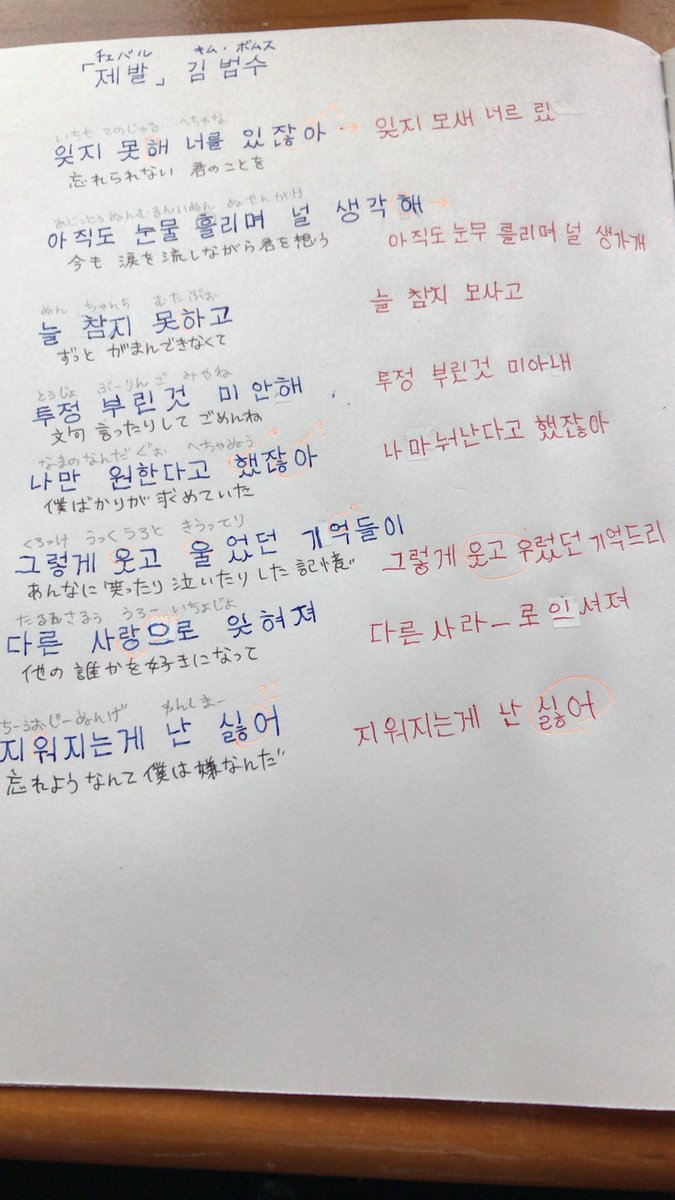 チェバル キム・ボムス
「제발」 김범수
いちも てのじゅる へちゃな
잊지 못해 너를 있잖아 → 잊지 모새 너르 맀
忘れられない 君のことを
あじっとぅ ぬんむるんいぬん ぬ せんがけ
아직도 눈물 흘리며 널 생각해 → 아직도 눈무 를리며 널 생가개
今も 涙を流しながら君を想う
ぬん ちゃんち むたぶぉ
늘 참지 못하고 늘 참지 모사고
ずっと がまんできなくて
とぅじょ ぶーりんご みやね
투정 부린것 미안해 투정 부린것 미아내
文句 言ったりして ごめんね
なまのなんだぐぉ へちゃぬぅ ?
나만 원한다고 했잖아 나 마 눠난다고 했잖아
僕ばかりが 求めていた
くろっけ うっくうろと きうってり
그렇게 웃고 울었던 기억들이 그렇게 웃고 우렀던 기억드리
あんなに 笑ったり 泣いたり した 記憶が
うろー いちょじょ
다른 사랑으로 잊혀져 다른 사라ㅡ로 이셔져
他の 誰かを好きになって
ちーうぉじーぬんげ わんしまー ??
지워지는게 난 싫어 지워지는게 난 싫어
忘れようなんて 僕は嫌なんだ